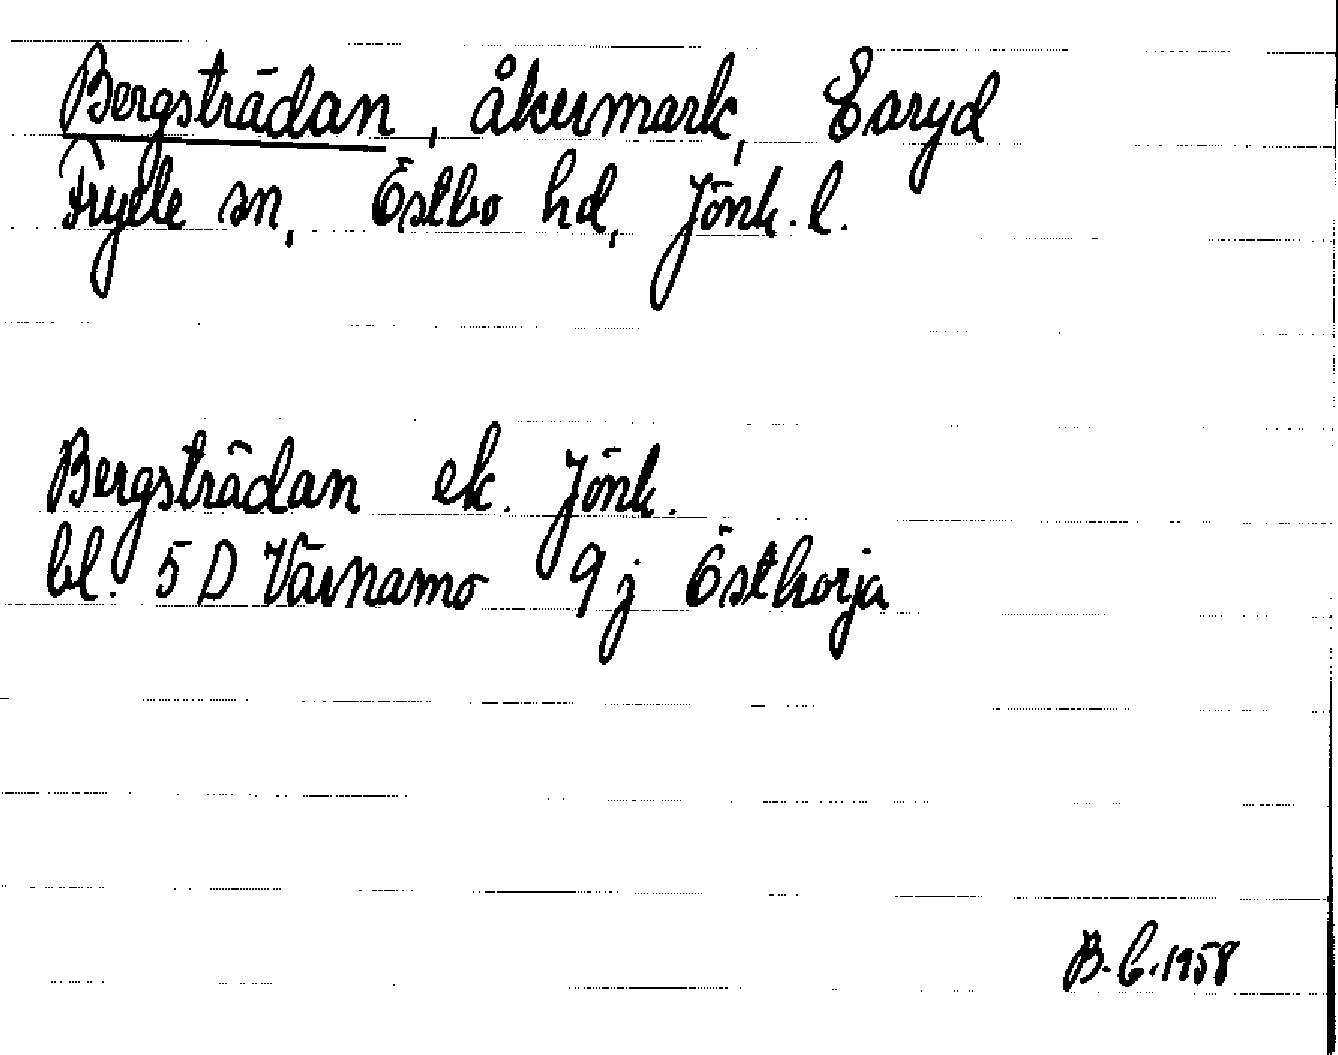 Bergsträdan, åkermark, Esaryd
Fryele sn, Östbo hd, Jönk. l.
Bergsträdan ek. Jönk.
bl. 5 D Värnamo 9 j Östhorja
B. C. 1958